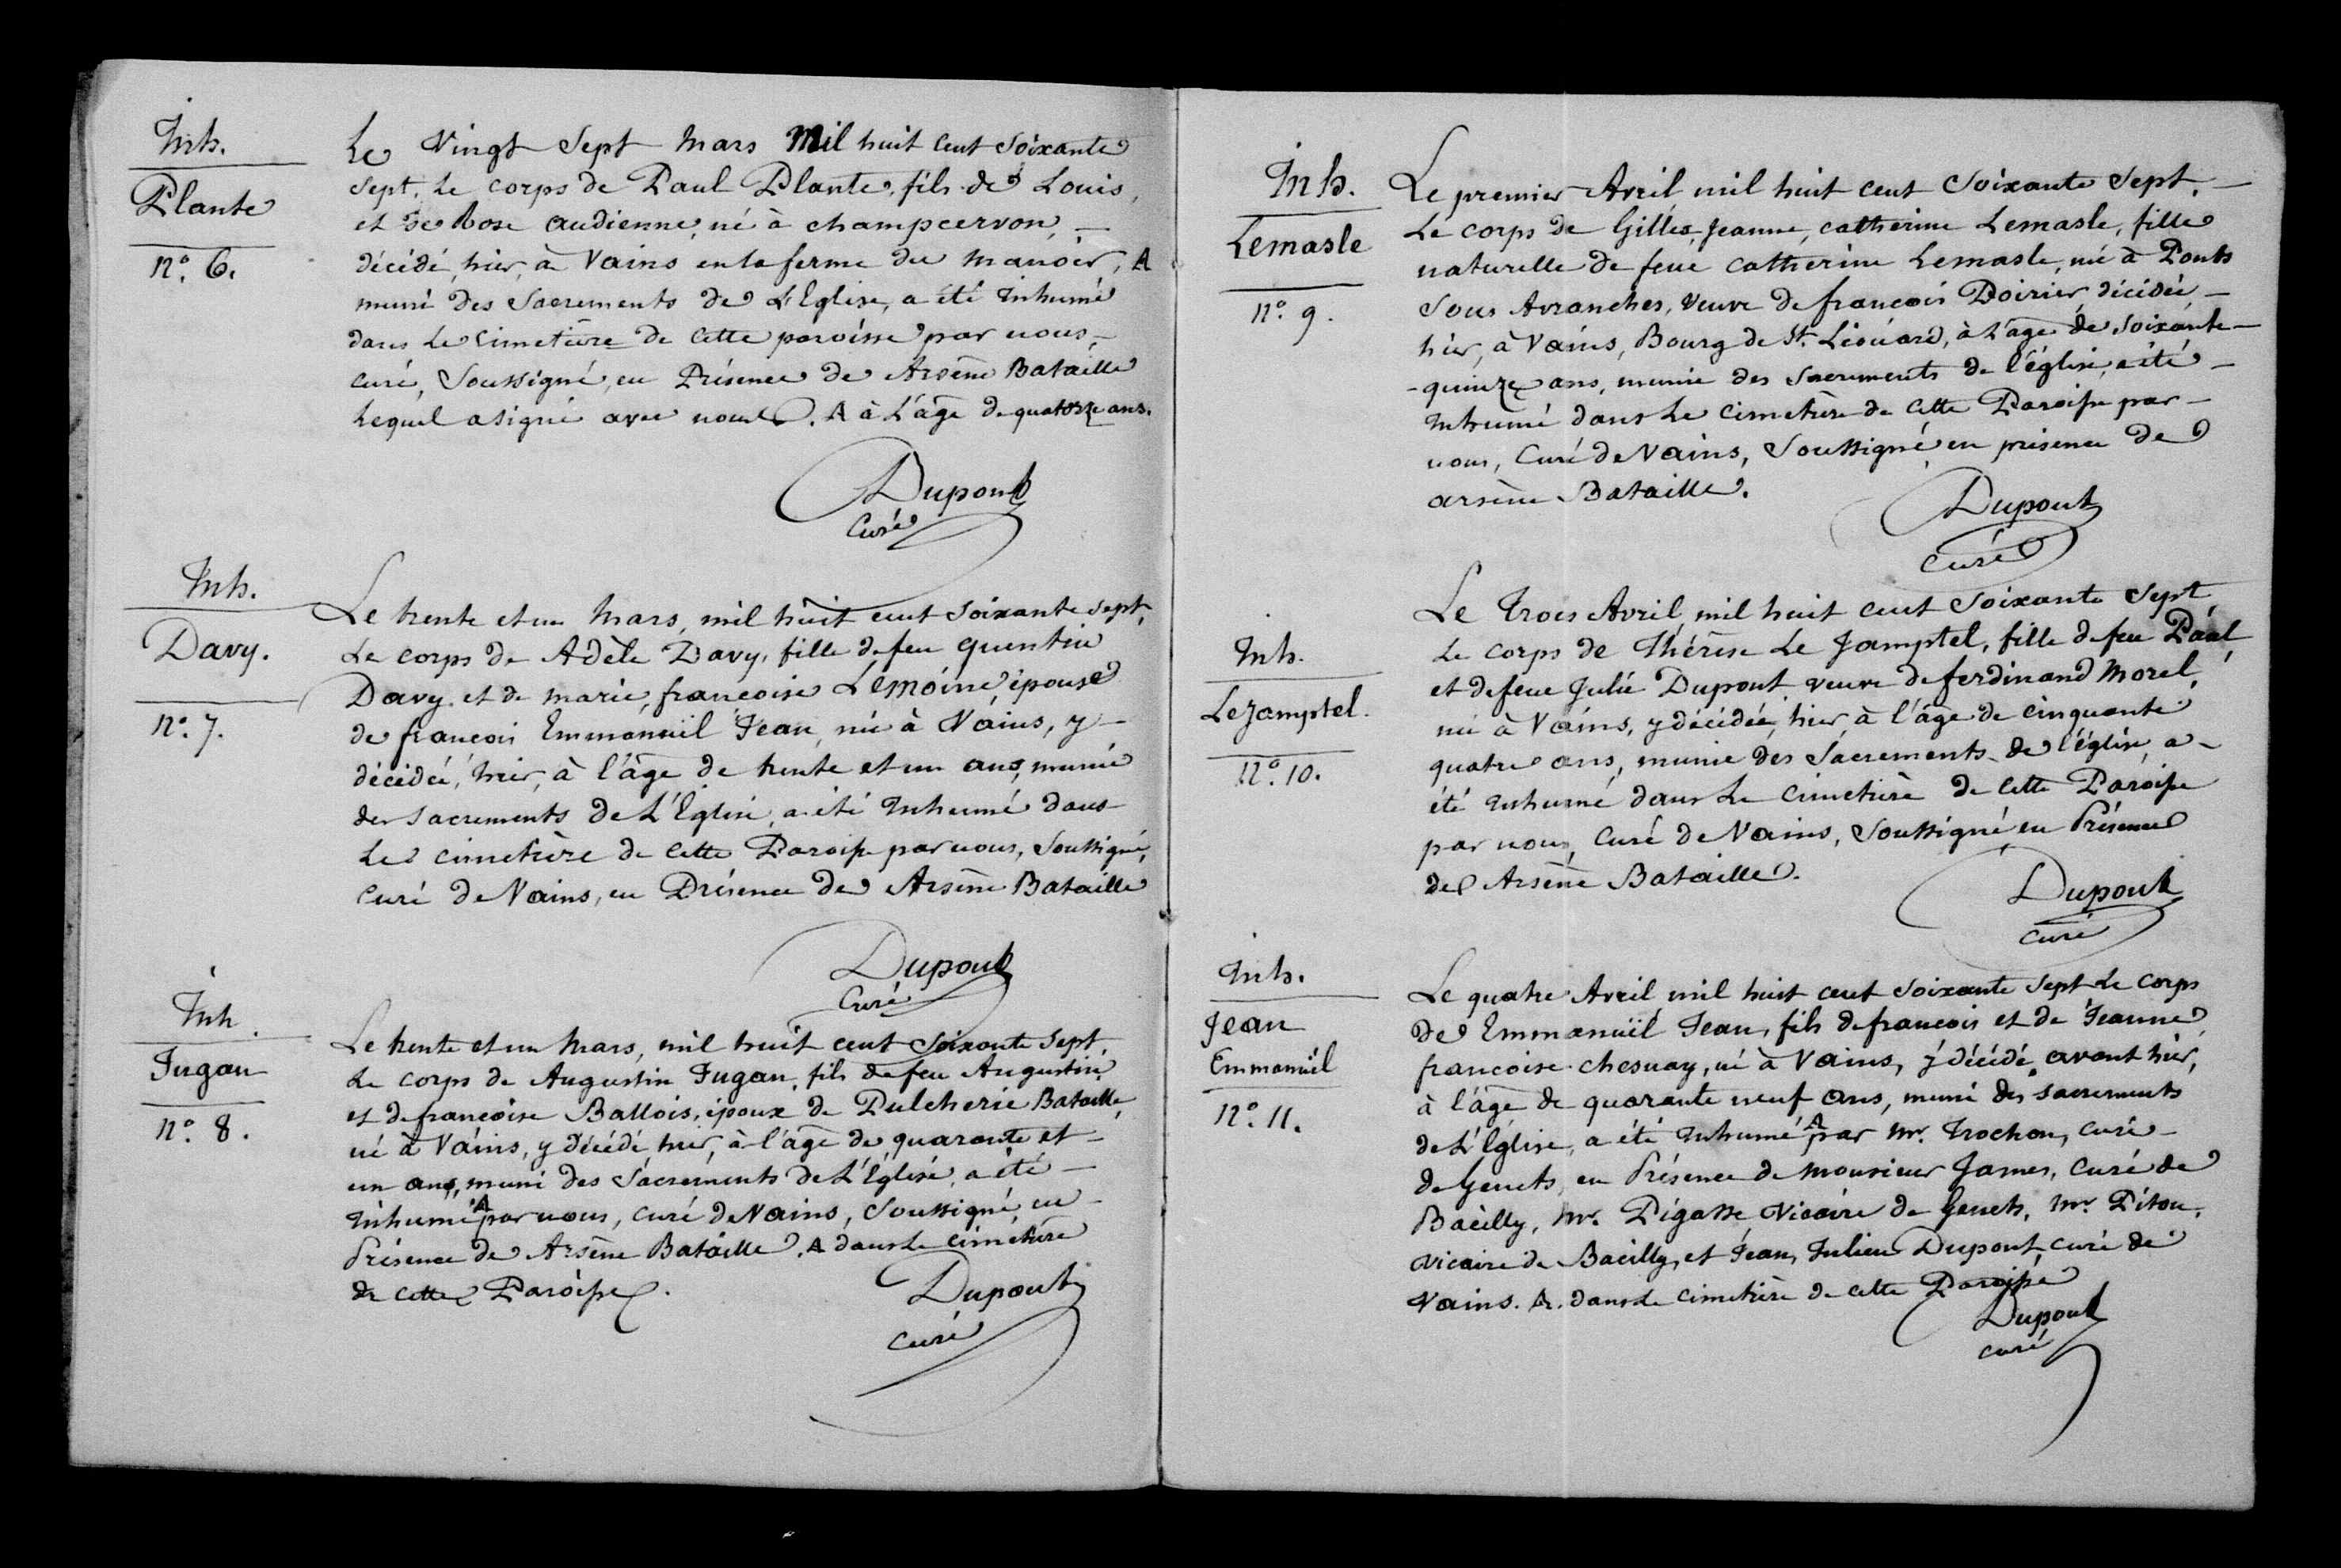 Inh.
Plante
n.° 6.
Le Vingt Sept Mars Mil huit cent Soixante
Sept, Le corps de Paul Plante, fils de Louis,
et de Rose Audienne, né à champcervon, —
décédé, hier, à Vains en la ferme du manoir, A
muni des Sacrements de L'Eglise, a été Inhumé
dans le Cimetière de cette paroisse par nous, —
Curé, Soussigné, en Présence de Arsène Bataille
Lequel a signé avec nous. A à L'âge de quatorze ans.
Dupont
Curé
Inh.
Davy.
n.° 7.
Le trente et un Mars, mil huit cent Soixante sept,
Le corps de Adèle Davy, fille de feu Quentin
Davy et de marie, françoise Lemoine, épouse
de françois Emmanuël Jean, né à Vains, y —
décédée, hier, à l'âge de trente et un ans, munie
des sacrements de L'Eglise, a été Inhumé dans
Le cimetière de cette Paroisse par nous, Soussigné,
Curé de Vains, en Présence de Arsène Bataille
Dupont
Curé
Inh.
Jugan
n.° 8.
Le trente et un Mars, mil huit cent Soixante Sept,
Le corps de Augustin Jugan, fils de feu Augustin,
et de françoise Ballois, époux de Pulcherie Bataille,
né à Vains, y décédé, hier, à l'âge de quarante et —
un ans, muni des Sacrements de L'Eglise, a été —
Inhumé A par nous, curé de Vains, Soussigné, en —
Présence de Arsène Bataille. A dans le Cimetière
de cette Paroisse.
Dupont
Curé
Inh.
Lemasle
n.° 9.
Le premier Avril mil huit cent Soixante Sept, —
Le corps de Gilles, Jeanne, catherine Lemasle, fille
naturelle de feue catherine Lemasle, né à Ponts
Sous Avranches, veuve de françois Poirier, décédée, —
hier, à Vains, Bourg de St. Léonard, à L'âge de Soixante —
- quinze ans, munie des Sacrements de l'église, a été —
Inhumé dans Le Cimetière de cette Paroisse par —
nous, Curé de Vains, Soussigné en présence de
arsène Bataille.
Dupont
Curé
Inh.
Lejamptel.
n.° 10.
Le Trois Avril, mil huit cent Soixante Sept
Le corps de Thérèse Le Jamptel, fille de feu Paul,
et de feue Julie Dupont, veuve de ferdinand Morel,
né à Vains, y décédée, hier, à l'âge de cinquante
quatre ans, munie des Sacrements de l'église, a —
été Inhumé dans Le Cimetière de cette Paroisse
par nous, Curé de Vains, Soussigné, en Présence
de Arsène Bataille.
Dupont
Curé
Inh.
Jean
Emmanuël
n.° 11.
Le quatre Avril mil huit cent Soixante Sept Le corps
de Emmanuël Jean, fils de françois et de Jeanne,
françoise chesnay, né à Vains, y décédé, avant hier,
à l'âge de quarante neuf ans, muni des sacrements
de L'Eglise, a été Inhumé A par Mr. Trochon, Curé —
de Genets, en Présence de Monsieur James, Curé de
Bacilly, Mr. Pigasse, Vicaire de Genets, Mr. Piton,
Vicaire de Bacilly, et Jean, Julien Dupont, Curé de
Vains. A. dans Le Cimetière de cette Paroisse
Dupont
Curé